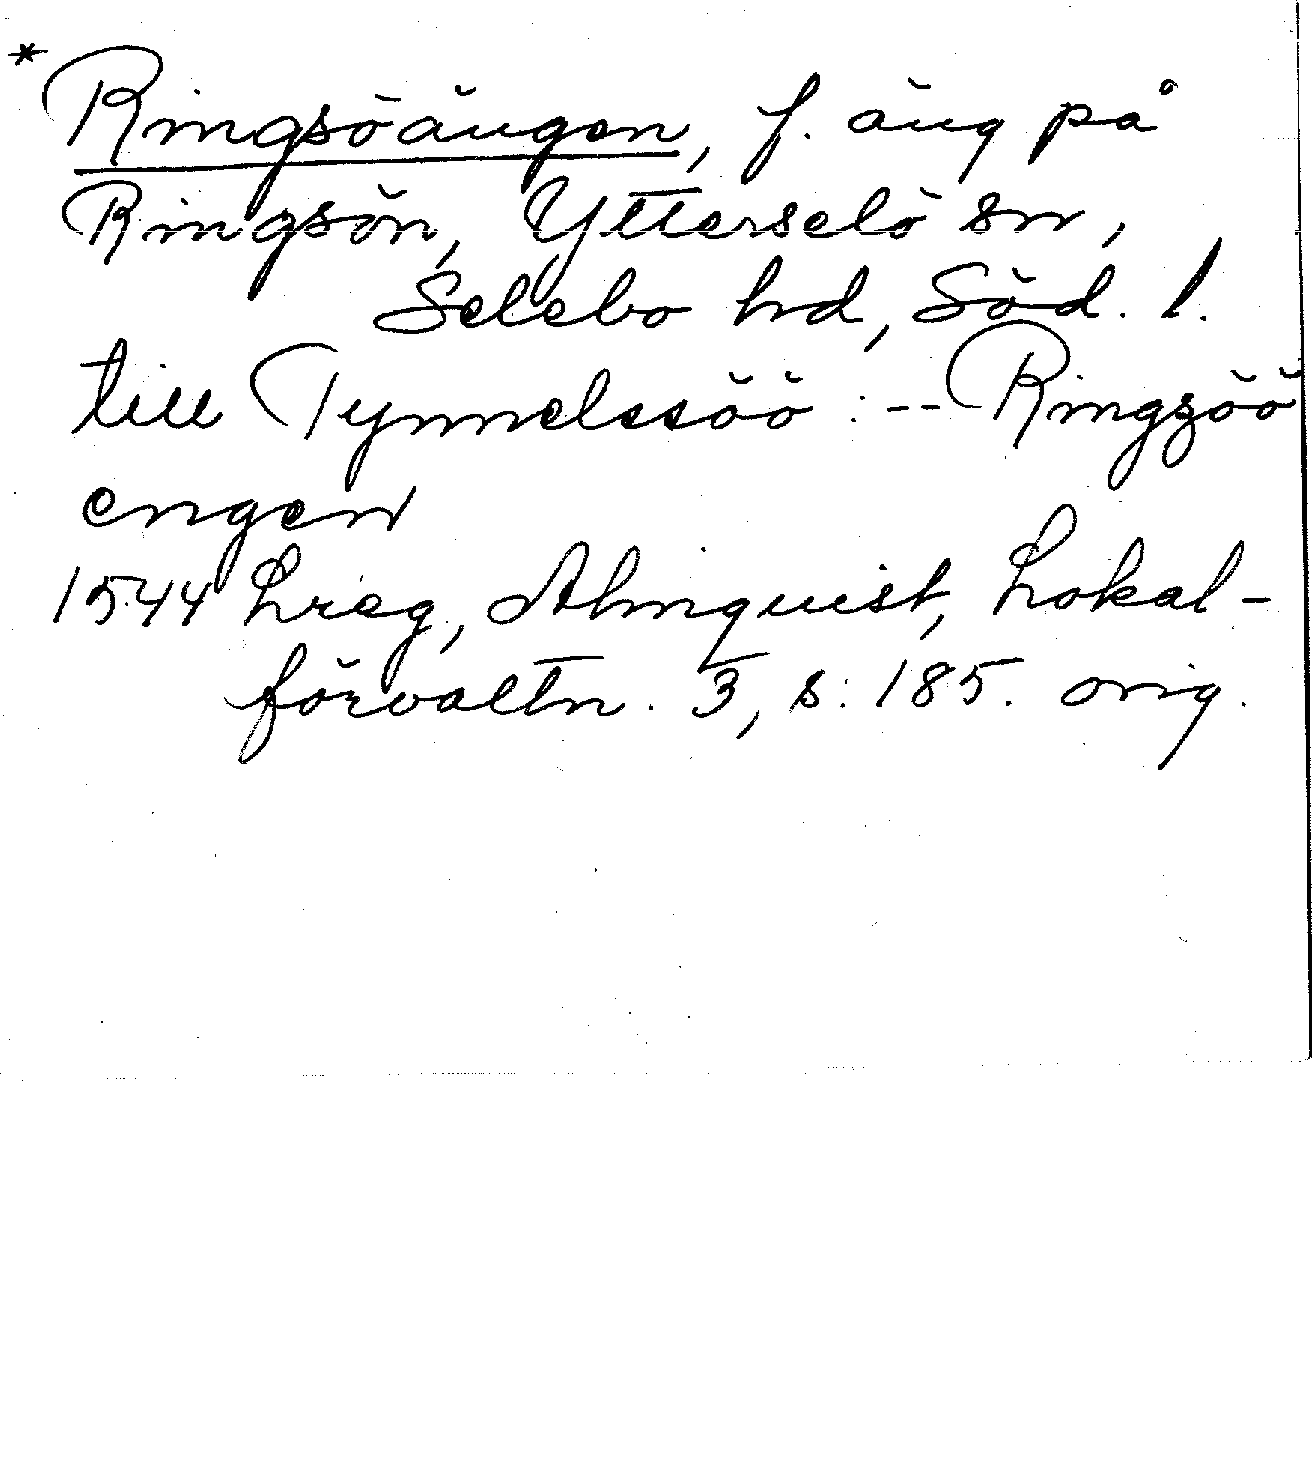 * Ringsöängen, f. äng på
Ringsön, Ytterselö sn,
Selebo hd, Söd. l.
till Tynnelssöö : --- Ringzöö
engen
1544 Lreg, Almquist, Lokal-
förvaltn. 3, s: 185. orig.